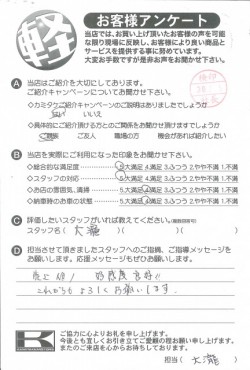 軽
お客様アンケート
当店では、お買い上げ頂いたお客様の声を可能
な限り現場に反映し、お客様により良い商品と
サービスを提供する事に努めています。
大変お手数ですが是非お声をお聞かせ下さい。
A 当店はご紹介を大切にしております。
ご紹介キャンペーンについてお聞かせ下さい。
・カミタケご紹介キャンペーンのご説明はありましたでしょうか
はい いいえ
・具体的にご紹介頂ける方とのご関係をお聞かせ頂けますでしょうか
ご親族 ご友人 職場の方 機会があれば紹介したい
B 当店を実際にご利用になった印象をお聞かせ下さい。
・総合的な満足度 5.大満足 4.満足 3.ふつう 2.やや不満 1.不満
・スタッフの対応 5.大満足 4.満足 3.ふつう 2.やや不満 1.不満
・お店の雰囲気、清掃 5.大満足 4.満足 3.ふつう 2.やや不満 1.不満
・納車時のお車の状態 5.大満足 4.満足 3.ふつう 2.やや不満 1.不満
C 評価したいスタッフがいれば教えてください。(複数回答可)
スタッフ名( 大瀧 )
D 担当させて頂きましたスタッフへのご指摘、ご指導メッセージを
お願いします。応援メッセージもぜひお願いします!
これからもよろしくお願いします。
K
ご協力に心よりお礼を申し上げます。
今後とも宜しくお引き立てご愛顧の程お願い申し上げます。
またのご来店を心からお待ちしております。
担当( 大瀧 )